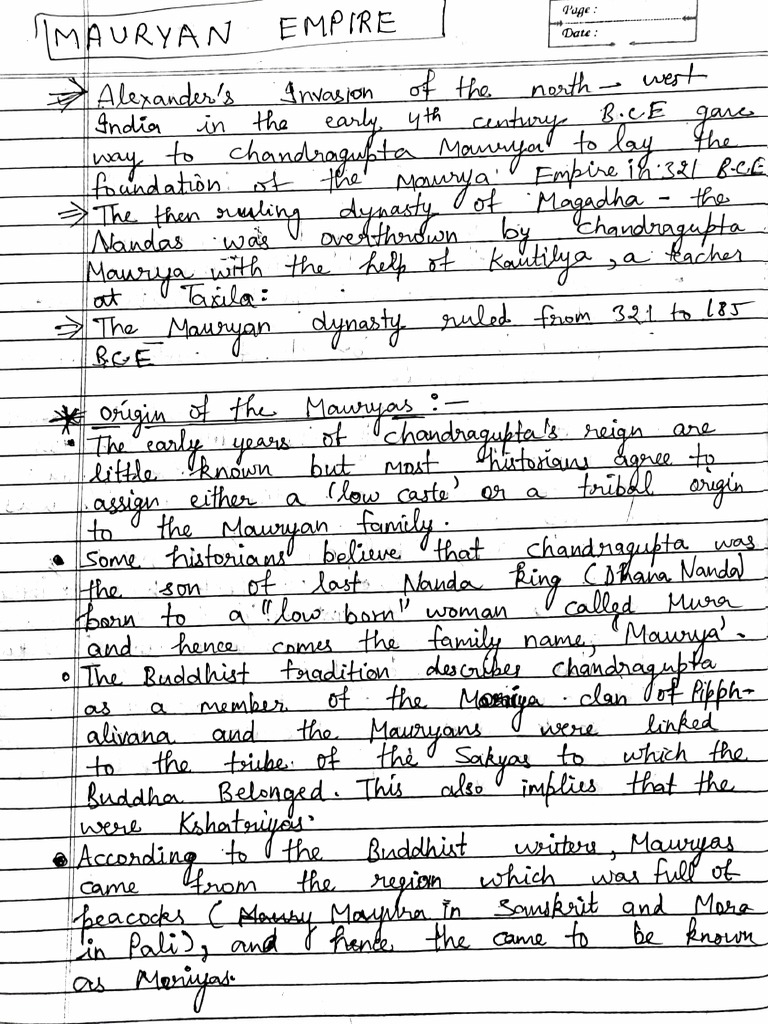 MAURYAN EMPIRE
Page :
Date :
⇒ Alexander's Invasion of the north – west
India in the early 4th century B.C.E gave
way to Chandragupta Maurya to lay the
foundation of the Maurya Empire in 321 B.C.E
⇒ The then ruling dynasty of Magadha – the
Nandas was overthrown by Chandragupta
Maurya with the help of Kautilya, a teacher
at Taxila:
⇒ The Mauryan dynasty ruled from 321 to 185
B.C.E
* Origin of the Mauryas :–
• The early years of Chandragupta's reign are
little known but most historians agree to
assign either a 'low caste' or a tribal origin
to the Mauryan family.
• Some historians believe that Chandragupta was
the son of last Nanda King (Dhana Nanda)
born to a "low born" woman called Mura
and hence comes the family name, 'Maurya'.
• The Buddhist tradition describes Chandragupta
as a member of the Moriya clan of Pipph-
alivana and the Mauryans were linked
to the tribe of the Sakyas to which the
Buddha Belonged. This also implies that the
were Kshatriyas.
• According to the Buddhist writers, Mauryas
came from the region which was full of
peacocks ( Mayura in Sanskrit and Mora
in Pali), and hence the came to be known
as Moriyas.